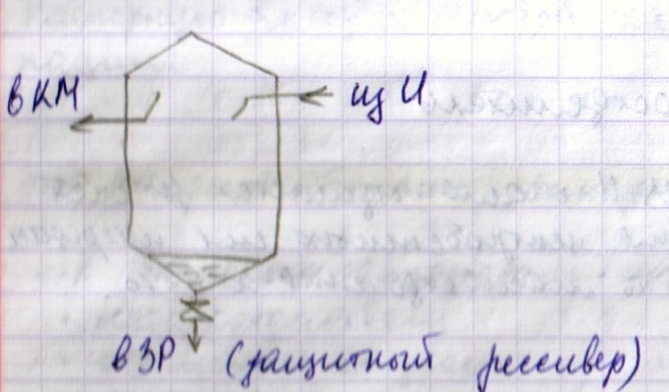 в КМ
из И
в ЗР (защитный рессивер)